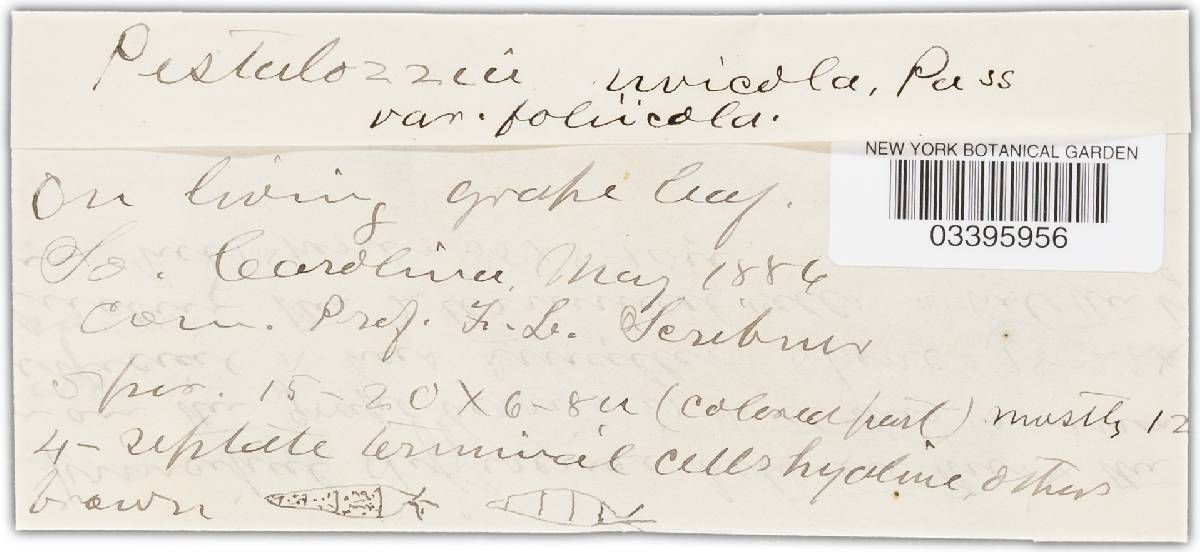 Pestalozzia uvicola, Pass
var. foliicola.
NEW YORK BOTANICAL GARDEN
03395956
On living grape leaf.
So. Carolina, May 1886
Com. Prof. F. L. Scribner
Spor. 15-20 X 6-8u (colored part) mostly 12
4-septate terminal cells hyaline, others
brown